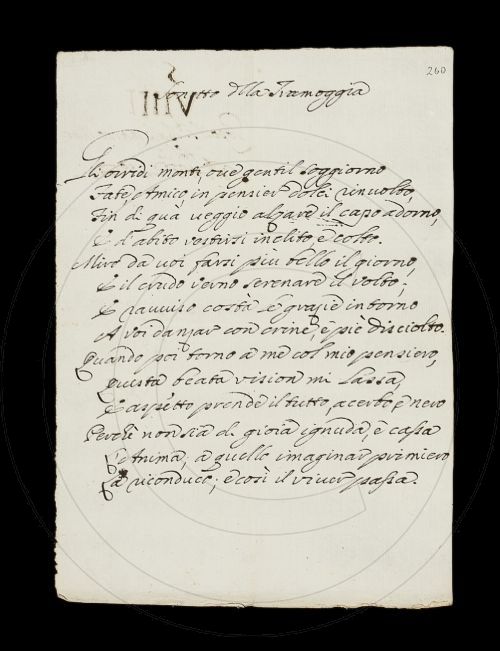 260
Sonetto della Tramoggia
VIIII
Gli viridi monti, ove gentil soggiorno
Fate, Amico, in pensier dolci rinvolto,
Fin di qua veggio alzare il capo adorno,
E d'abito vestirsi inclito, e colto.
Miro da voi farsi più bello il giorno,
E il crudo verno serenare il volto;
E ravviso costà le grazie intorno
A voi danzar con crine, e piè disciolto.
Quando poi torno a me col mio pensiero,
Questa beata vision mi lassa,
E aspetto prende il tutto, acerbo, e nero
Perchè non sia di gioia ignuda, e cassa
L'Anima, a quello imaginar primiero
Fa riconduce; e così il viver passa.